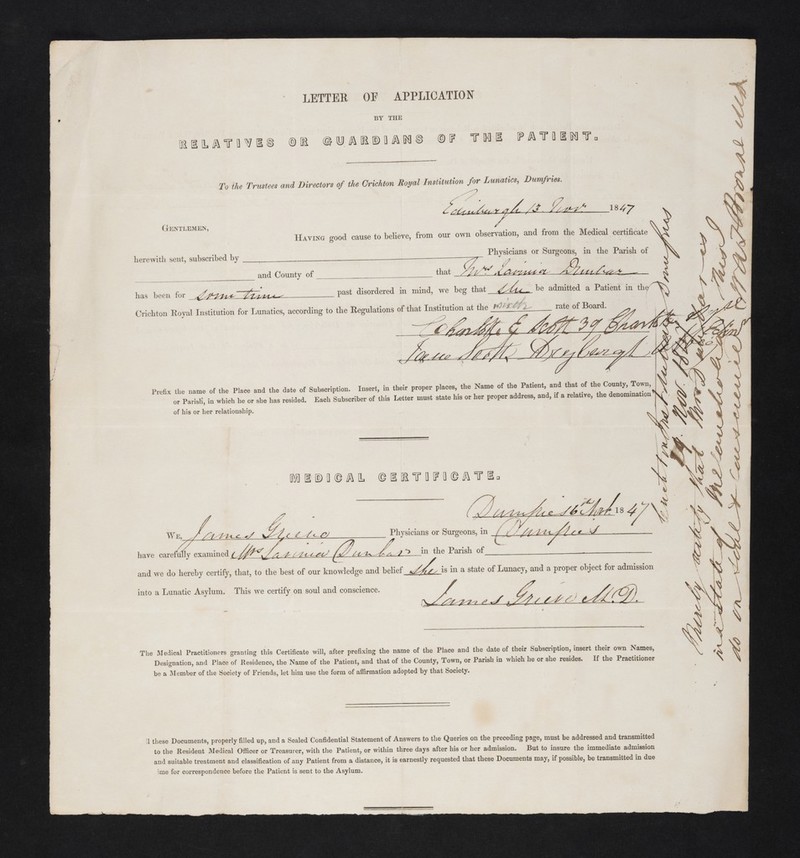 LETTER OF APPLICATION
BY THE
RELATIVES OR GUARDIANS OF THE PATIENT.
To the Trustees and Directors of the Crichton Royal Institution for Lunatics, Dumfries.
Edinburgh 13 Novr 1847
GENTLEMEN,
HAVING good cause to believe, from our own observation, and from the Medical certificate
herewith sent, subscribed by Physicians or Surgeons, in the Parish of
and County of that Mrs Lavinia Dunbar
has been for some time past disordered in mind, we beg that she be admitted a Patient in the
Crichton Royal Institution for Lunatics, according to the Regulations of that Institution at the sixth rate of Board.
Charlotte E Scott 39
Jane Scott
Prefix the name of the Place and the date of Subscription. Insert, in their proper places, the Name of the Patient, and that of the County, Town,
or Parish, in which he or she has resided. Each Subscriber of this Letter must state his or her proper address, and, if a relative, the denomination
of his or her relationship.
MEDICAL CERTIFICATE.
Dumfries 16th Novr 1847
WE, James Grieve Physicians or Surgeons, in Dumfries
have carefully examined Mrs Lavinia Dunbar in the Parish of
and we do hereby certify, that, to the best of our knowledge and belief she is in a state of Lunacy, and a proper object for admission
into a Lunatic Asylum. This we certify on soul and conscience.
James Grieve M.D.
The Medical Practitioners granting this Certificate will, after prefixing the name of the Place and the date of their Subscription, insert their own Names,
Designation, and Place of Residence, the Name of the Patient, and that of the County, Town, or Parish in which he or she resides. If the Practitioner
be a Member of the Society of Friends, let him use the form of affirmation adopted by that Society.
ll these Documents, properly filled up, and a Sealed Confidential Statement of Answers to the Queries on the preceding page, must be addressed and transmitted
to the Resident Medical Officer or Treasurer, with the Patient, or within three days after his or her admission. But to insure the immediate admission
and suitable treatment and classification of any Patient from a distance, it is earnestly requested that these Documents may, if possible, be transmitted in due
ime for correspondence before the Patient is sent to the Asylum.
Crichton Institution Dumfries
19 Nov. 1847
I hereby certify that Mrs Dunbar is
in a state of Melancholia. This I
do on soul & conscience